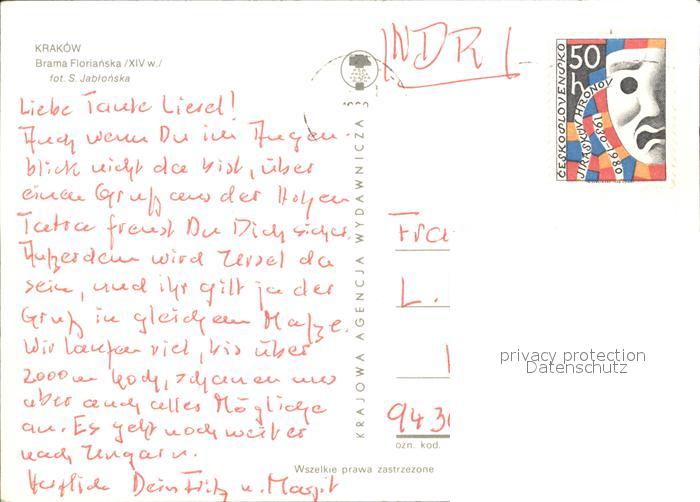 KRAKÓW
Brama Floriańska /XIV w./
fot. S. Jabłońska
Liebe Tante Liesel!
Auch wenn Du im Augen-
blick nicht da bist, über
einen Gruß aus der Hohen
Tatra freust Du Dich sicher.
Außerdem wird Ursel da
sein, und ihr gilt ja der
Gruß in gleichem Maße.
Wir laufen viel, bis über
2000 m hoch, schauen uns
aber auch alles Mögliche
an. Es geht noch weiter
nach Ungarn.
Herzlich Dein Fritz u. Margit
KRAJOWA AGENCJA WYDAWNICZA
NDR
50 h
ČESKOSLOVENSKO
JIRÁSKŮV HRONOV
1930-1980
Fra
L.
943
ozn. kod.
Wszelkie prawa zastrzeżone
privacy protection
Datenschutz